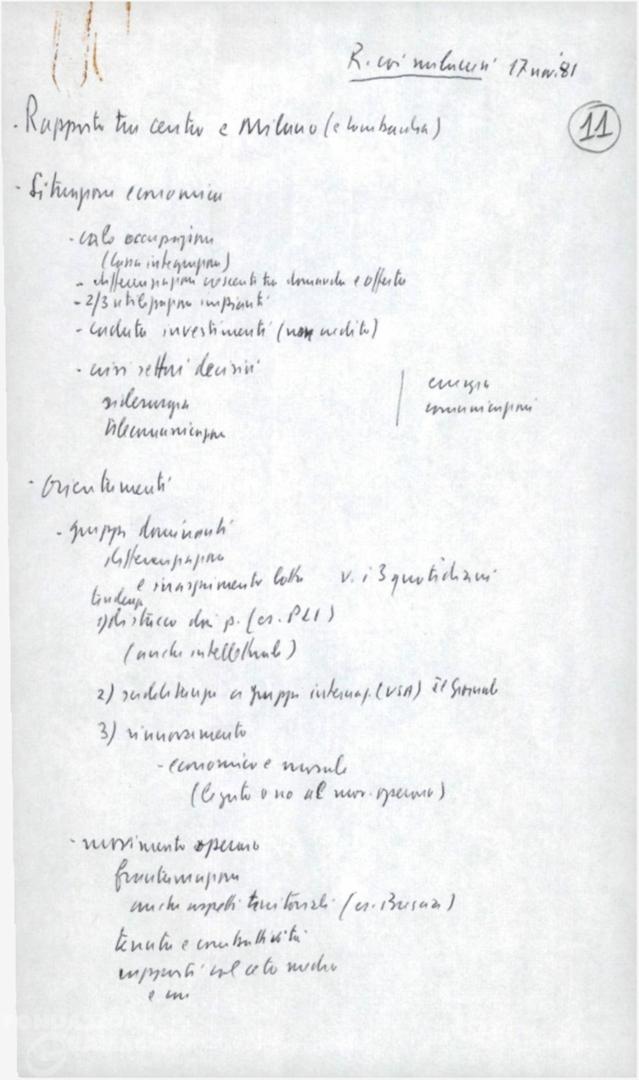 R. coi milanesi 17 nov. 81
11
- Rapporto tra centro e Milano (e Lombardia)
- Situazione economica
- calo occupazione
(Cassa integrazione)
- differenziazioni crescenti tra domanda e offerta
- 2/3 utilizzazione impianti
- caduta investimenti (non credito)
- crisi settori decisivi
siderurgia
telecomunicazioni
energia
comunicazioni
- Orientamenti
- gruppi dominanti
differenziazione
e inasprimento lotta v. i 3 quotidiani
tendenze
1) distacco dai p. (es. PLI)
(anche intellettuali)
2) gruppi internaz. (USA) il Giornale
3) rinnovamento
- economico e morale
(legato o no al mov. operaio)
- movimento operaio
frantumazione
anche aspetti territoriali (es. Brescia)
tenuta e combattività
rapporti col ceto medio
e